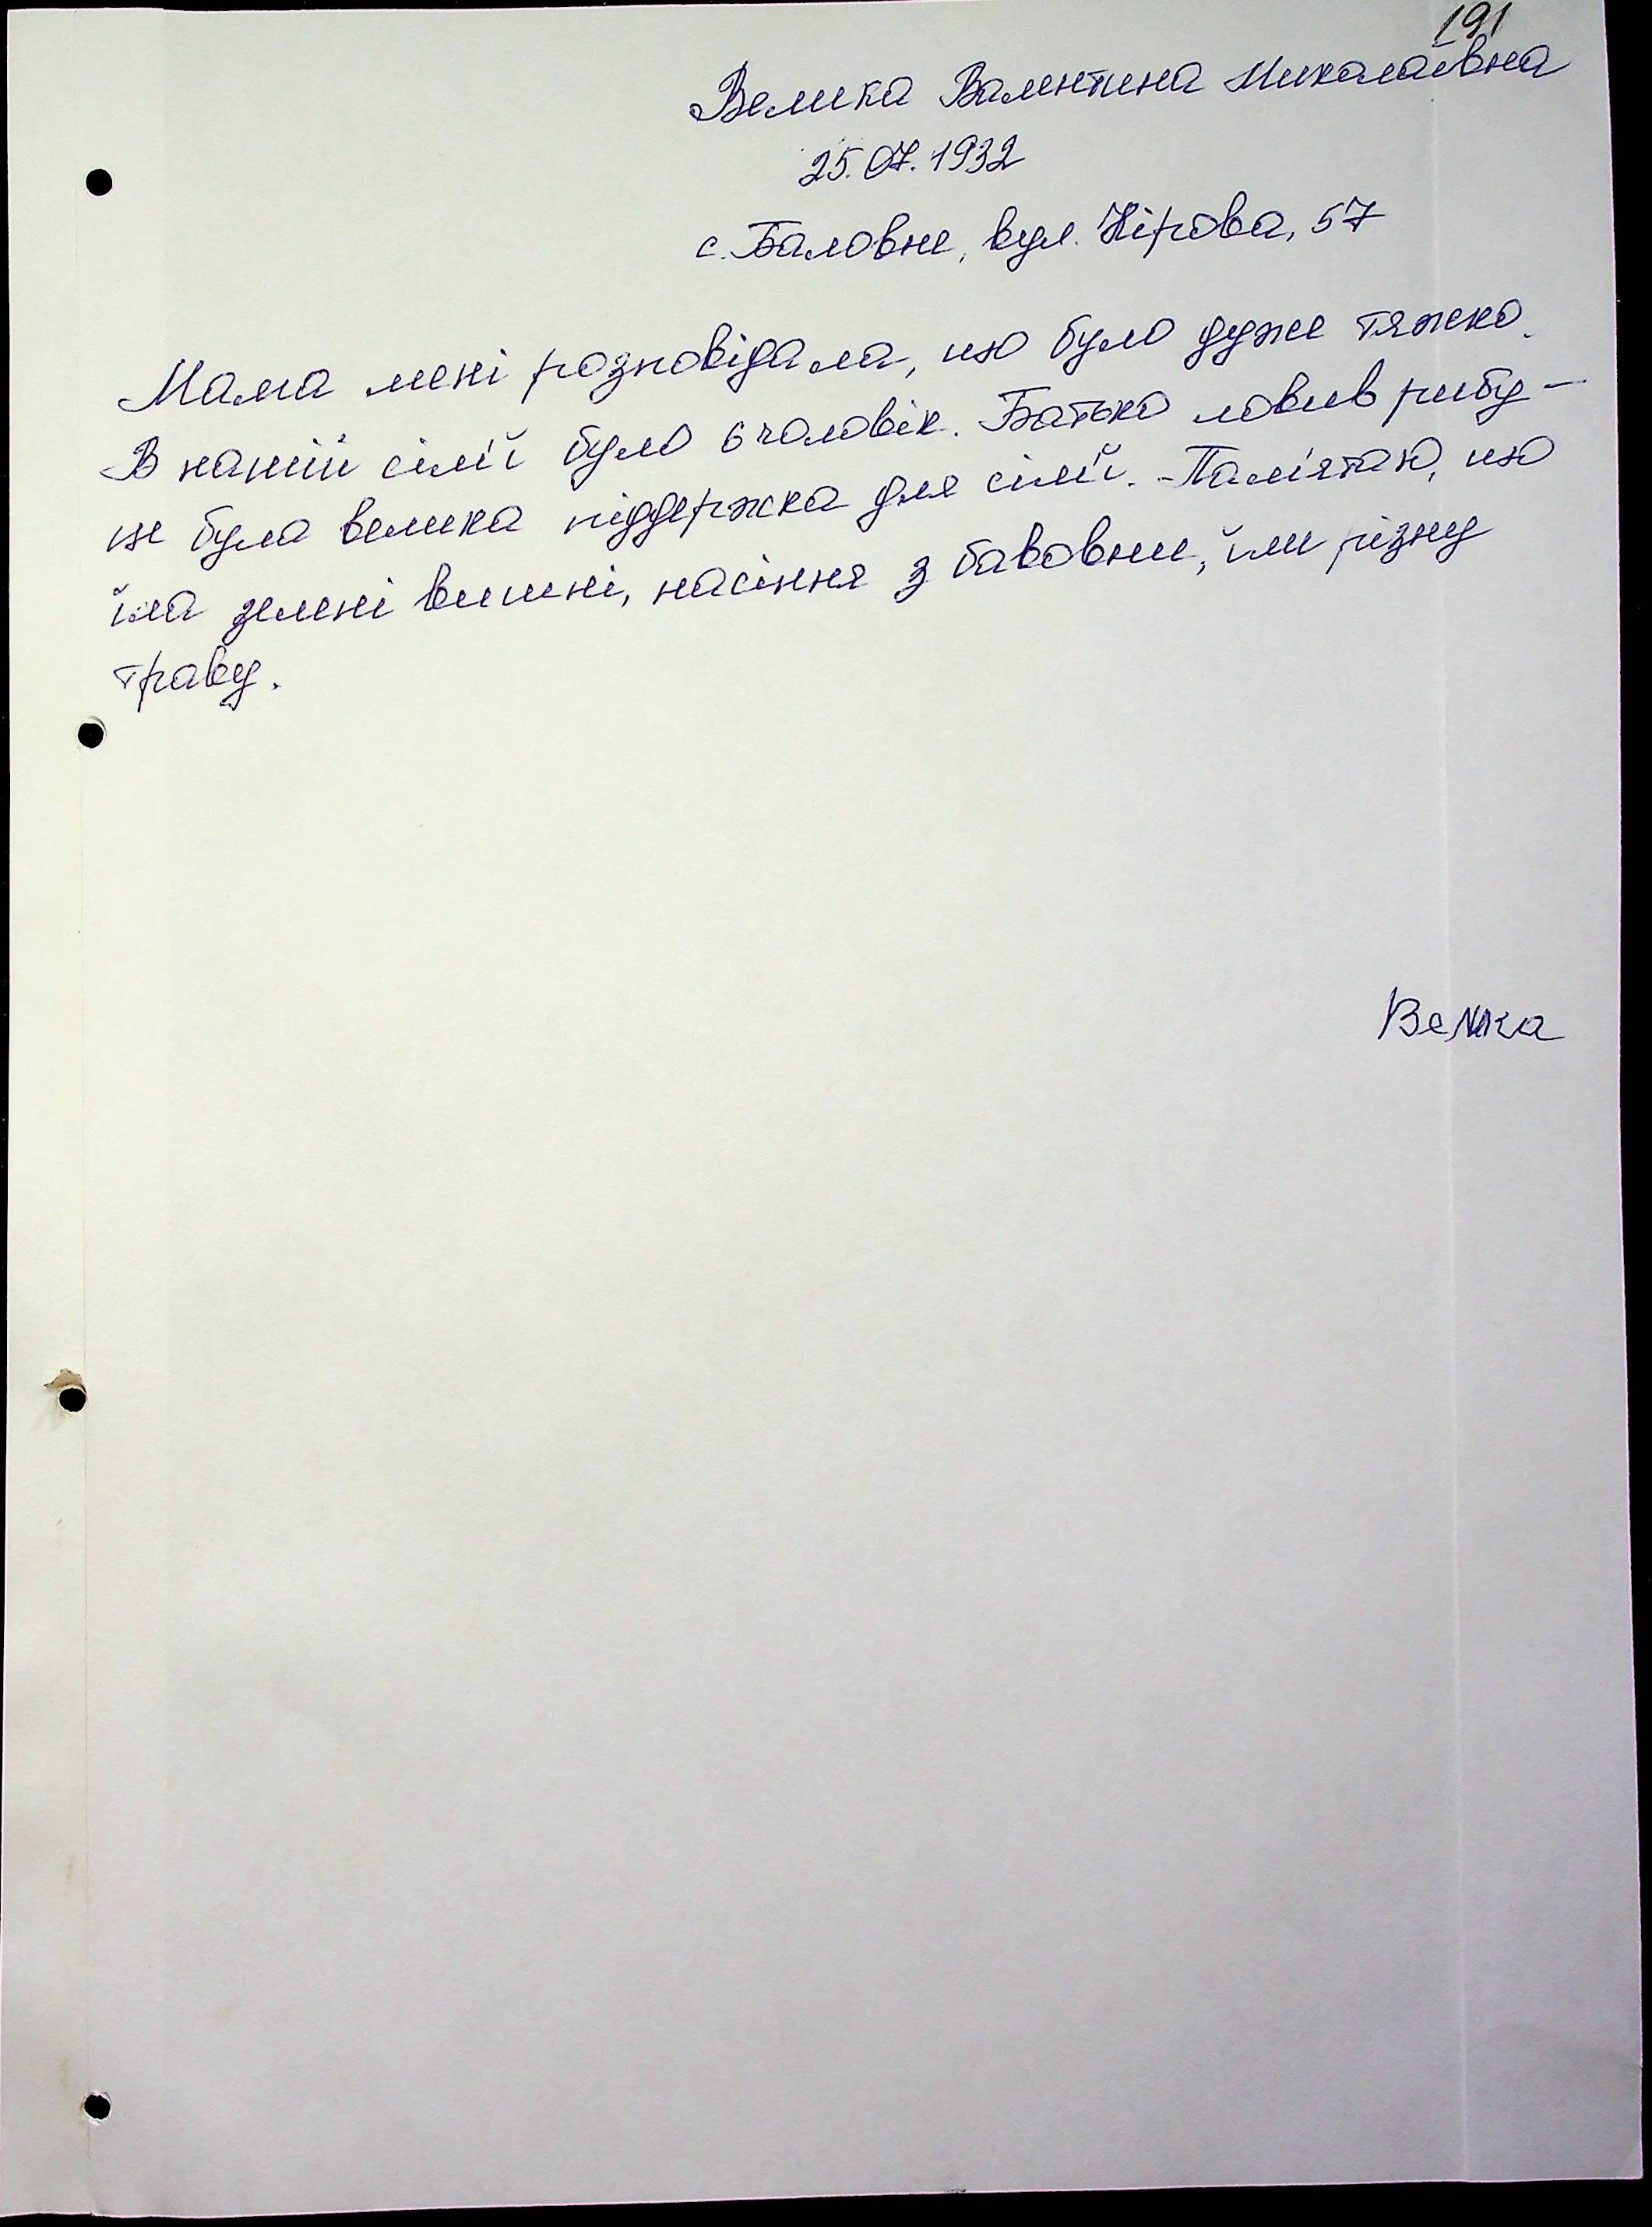 191
Велика Валентина Миколаївна
25.07.1932
с. Баловне, вул. Кірова, 57
Мама мені розповідала, що було дуже тяжко.
В нашій сім'ї було 6 чоловік. Батько ловив рибу –
це була велика піддержка для сім'ї. Пам'ятаю, що
їла зелені вишні, насіння з бавовни, їли різну
траву.
Велика